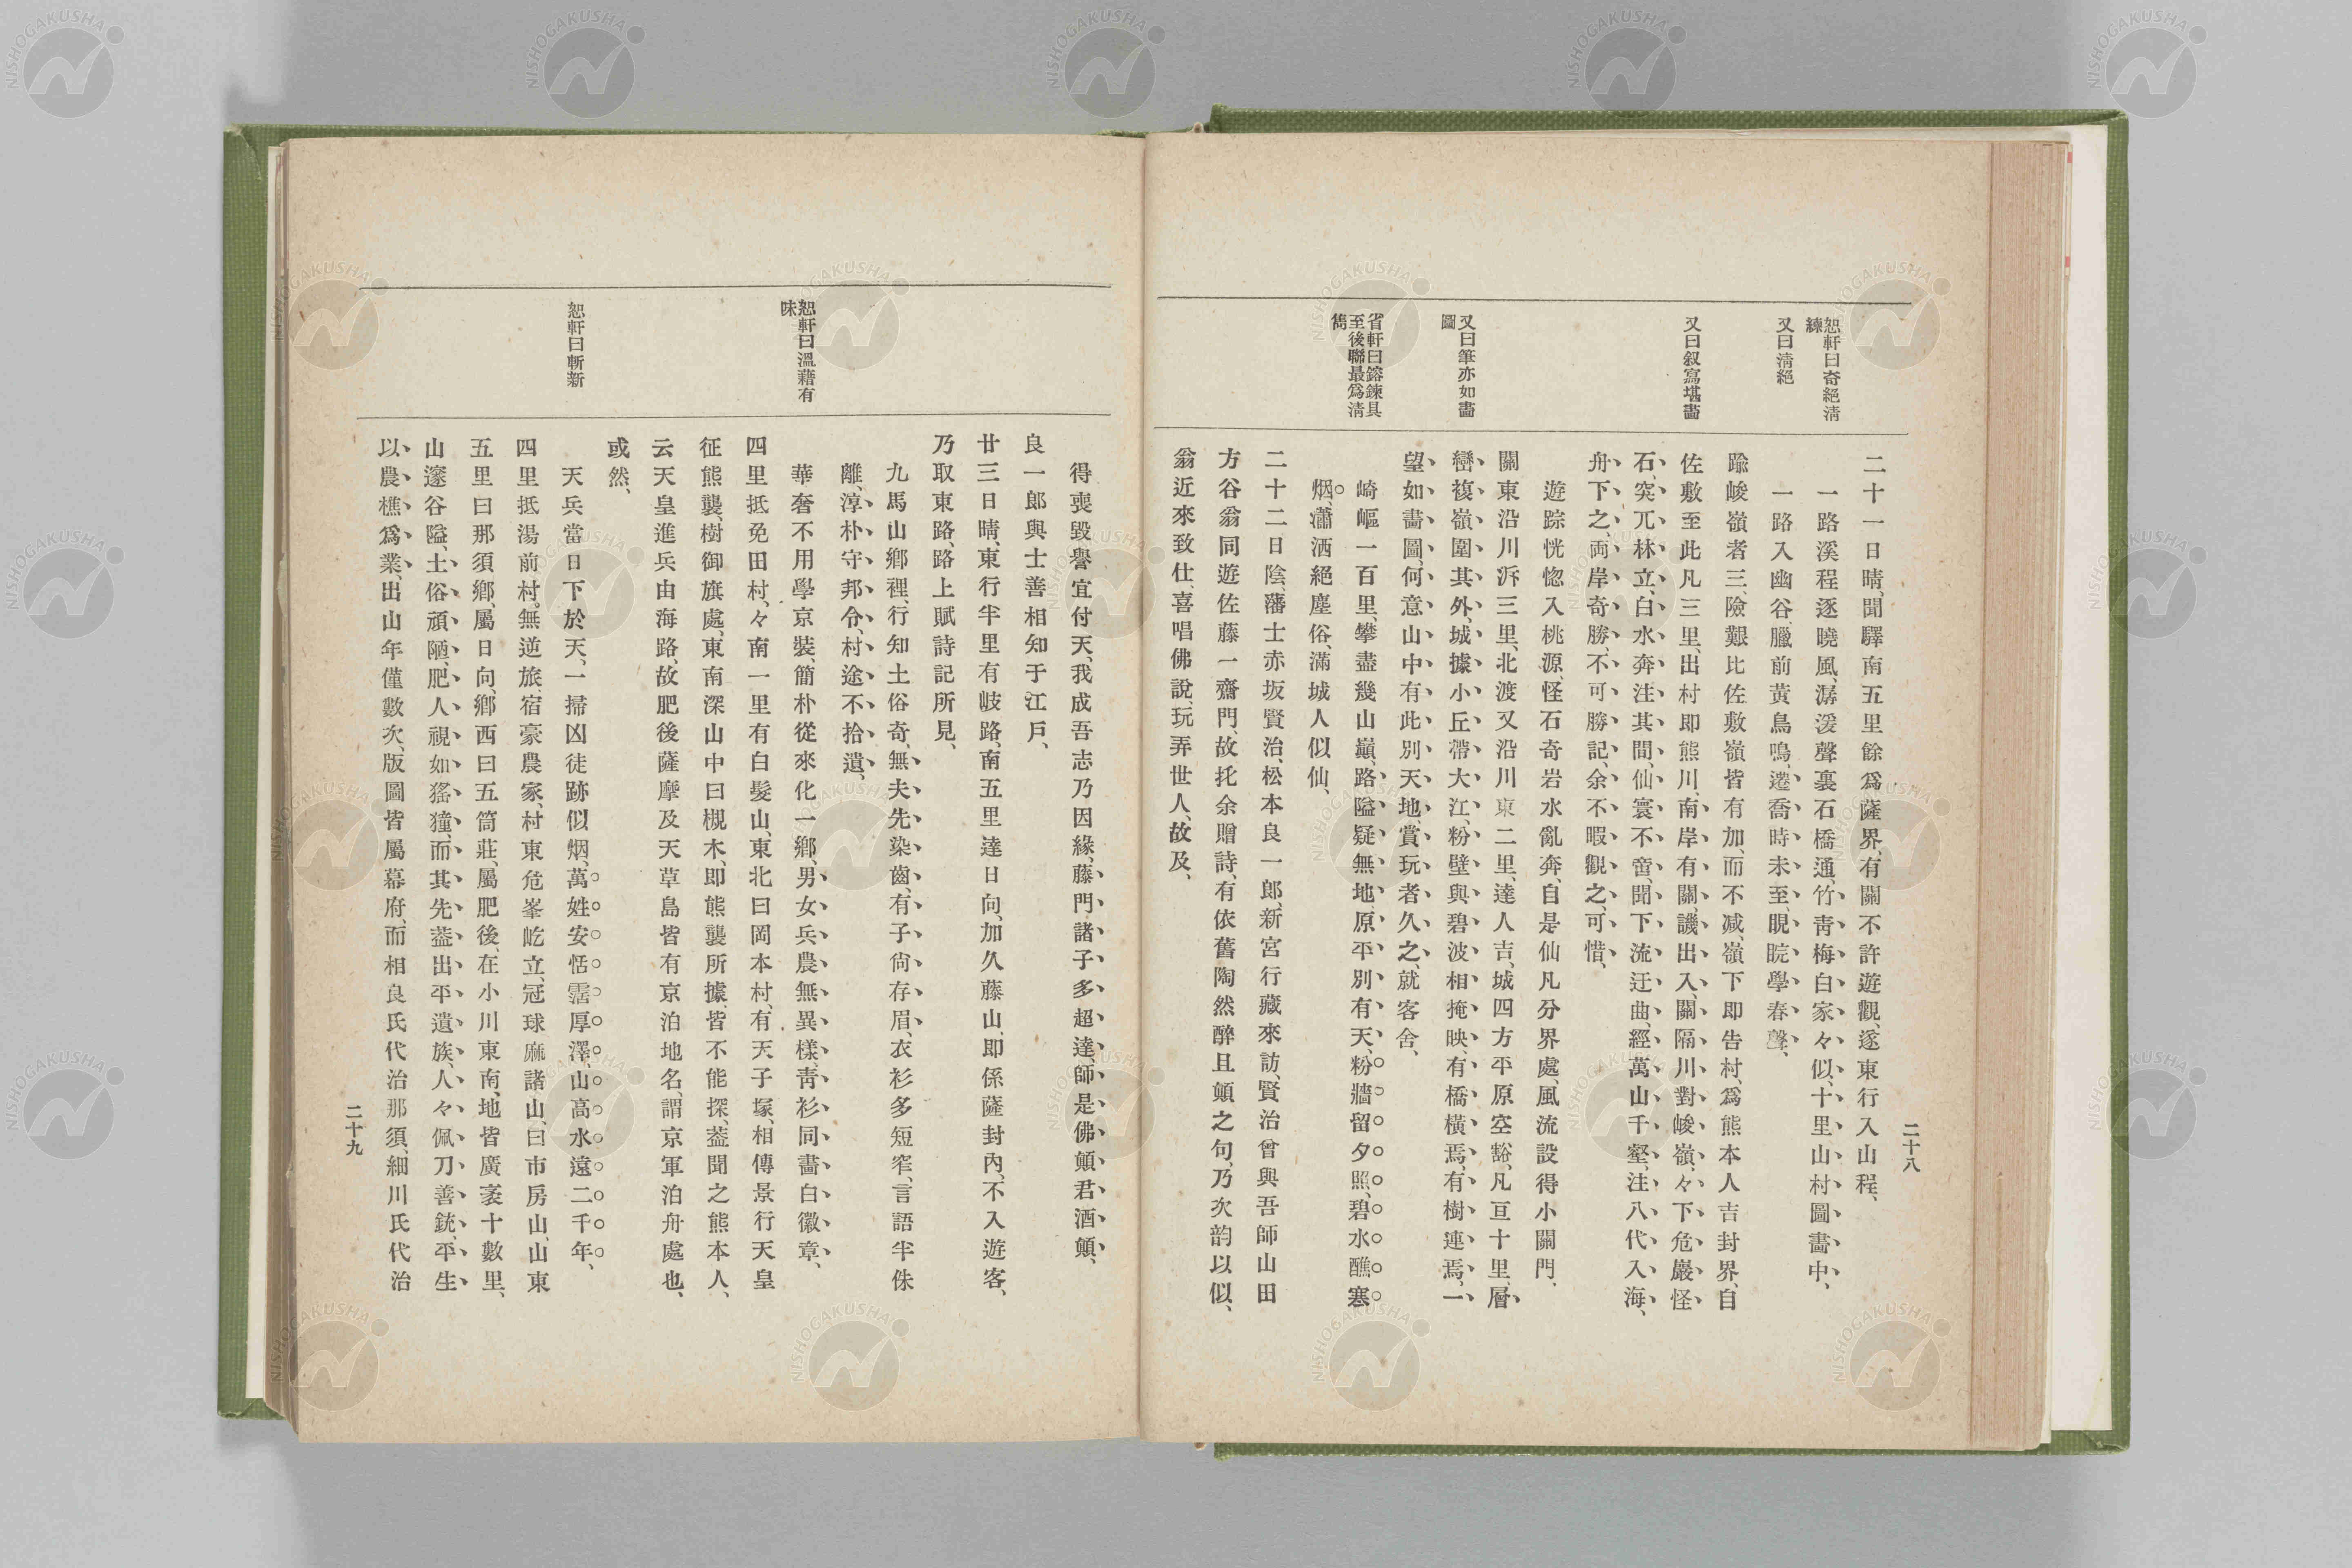 二十八
恕軒曰奇絕淸
練
又曰淸絕
又曰叙寫堪畵
又曰筆亦如畵
圖
省軒曰鎔鍊具
至後聯最爲淸
雋
二十一日晴、聞驛南五里餘爲薩界、有關不許遊觀、遂東行入山程、
一路溪程逐曉風、潺湲聲裏石橋通、竹靑梅白家々似、十里山村圖畵中、
一路入幽谷、臘前黃鳥鳴、遷喬時未至、睍睆學春聲、
踰峻嶺者三、險艱比佐敷嶺皆有加、而不减、嶺下即告村、爲熊本人吉封界、自
佐敷至此凡三里、出村即熊川、南岸有關、譏出入、關隔川對峻嶺、々下危巖怪
石、突兀林立、白水奔注其間、仙寰不啻、聞下流迂曲、經萬山千壑、注八代入海、
舟下之、両岸奇勝、不可勝記、余不暇觀之、可惜、
遊踪恍惚入桃源、怪石奇岩水亂奔、自是仙凡分界處、風流設得小關門、
關東沿川泝三里、北渡又沿川東二里、達人吉、城四方平原空豁、凡亘十里、層
巒複嶺圍其外、城據小丘帶大江、粉壁與碧波相掩映、有橋橫焉、有樹連焉、一
望如畵圖、何意山中有此別天地、賞玩者久之、就客舍、
崎嶇一百里、攀盡幾山巓、路隘疑無地、原平別有天、粉牆留夕照、碧水醮寒
烟、瀟洒絕塵俗、滿城人似仙、
二十二日陰、藩士赤坂賢治、松本良一郎、新宮行藏來訪、賢治曾與吾師山田
方谷翁同遊佐藤一齋門、故托余贈詩、有依舊陶然醉且顚之句、乃次韵以似、
翁近來致仕、喜唱佛說、玩弄世人、故及、
恕軒曰溫藉有
味
恕軒曰斬新
得喪毀譽宜付天、我成吾志乃因緣、藤門諸子多超達、師是佛顚君酒顚、
良一郎與士善相知于江戶、
廿三日晴、東行半里有岐路、南五里達日向、加久藤山、即係薩封內、不入遊客、
乃取東路、路上賦詩記所見、
九馬山鄉裡、行知土俗奇、無夫先染齒、有子尙存眉、衣衫多短窄、言語半侏
離、淳朴守邦令、村途不拾遺、
華奢不用學京裝、簡朴從來化一鄉、男女兵農無異樣、靑衫同畵白徽章、
四里抵免田村、々南一里有白髮山、東北曰岡本村、有天子塚、相傳景行天皇
征熊襲、樹御旗處、東南深山中曰槻木、即熊襲所據、皆不能探、葢聞之熊本人、
云天皇進兵由海路、故肥後薩摩及天草島皆有京泊地名、謂京軍泊舟處也、
或然、
天兵當日下於天、一掃凶徒跡似烟、萬姓安恬霑厚澤、山高水遠二千年、
四里抵湯前村。無逆旅、宿豪農家、村東危峯屹立、冠球麻諸山、曰市房山、山東
五里曰那須鄉、屬日向、鄉西曰五箇莊、屬肥後、在小川東南、地皆廣袤十數里、
山邃谷隘、土俗頑陋、肥人視如猺獞、而其先葢出平遺族、人々佩刀善銃、平生
以農樵爲業、出山年僅數次、版圖皆屬幕府、而相良氏代治那須、細川氏代治
二十九